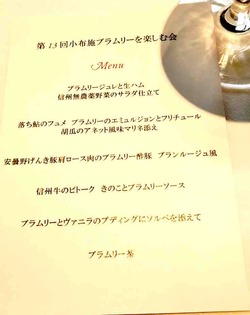 第13回小布施ブラムリーを楽しむ会
Menu
ブラムリージュレと生ハム
信州無農薬野菜のサラダ仕立て
落ち鮎のフュメ ブラムリーのエミュルジョンとフリチュール
胡瓜のアネット風味マリネ添え
安曇野げんき豚肩ロース肉のブラムリー酢豚 ブランルージュ風
信州牛のビトーク きのことブラムリーソース
ブラムリーとヴァニラのプディングにソルベを添えて
ブラムリー茶